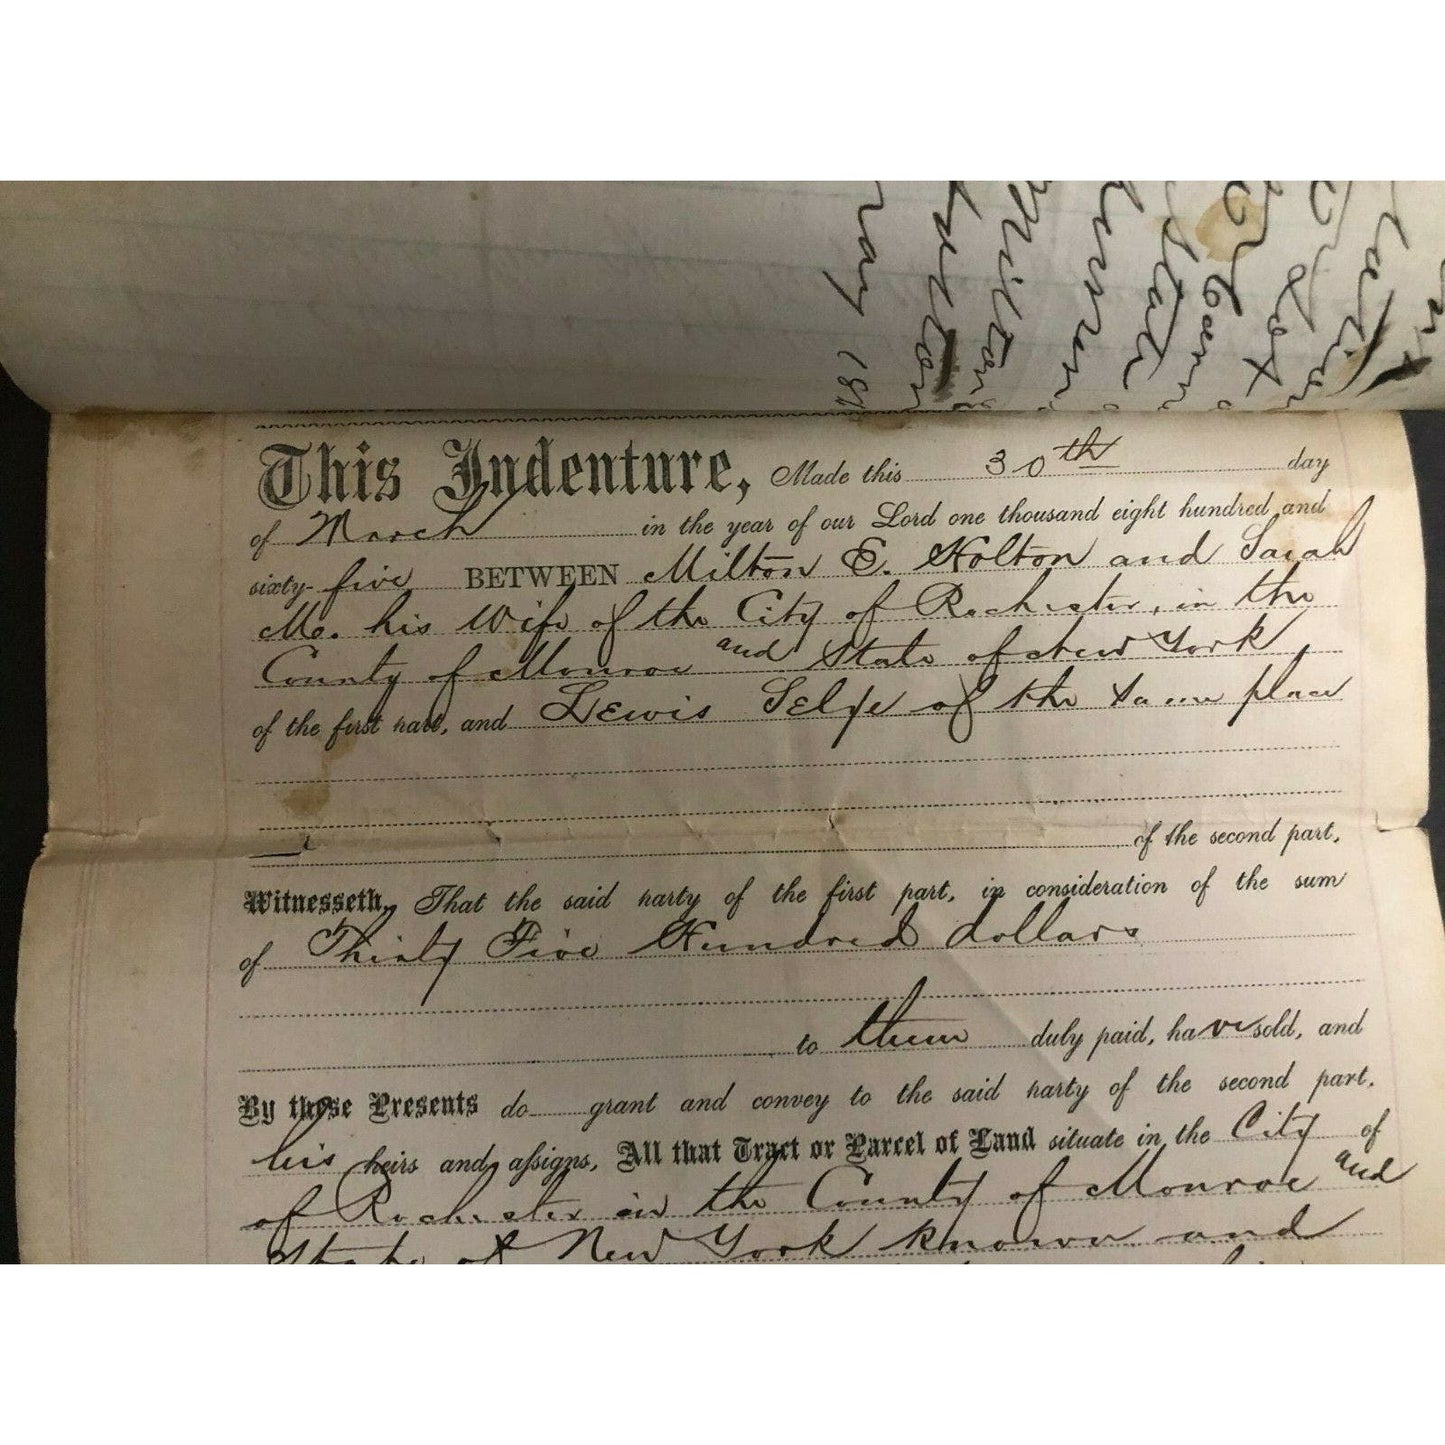 This Indenture, Made this 30th day
of March in the year of our Lord one thousand eight hundred and
sixty-five BETWEEN Milton E. Holton and Sarah
M. his Wife of the City of Rochester, in the
County of Monroe and State of New York
of the first part, and Lewis Selye of the same place
of the second part,
Witnesseth, That the said party of the first part, in consideration of the sum
of Thirty Five Hundred dollars
to them duly paid, have sold, and
By these Presents do grant and convey to the said party of the second part,
his heirs and assigns, All that Tract or Parcel of Land situate in the City of
of Rochester in the County of Monroe and
State of New York known and